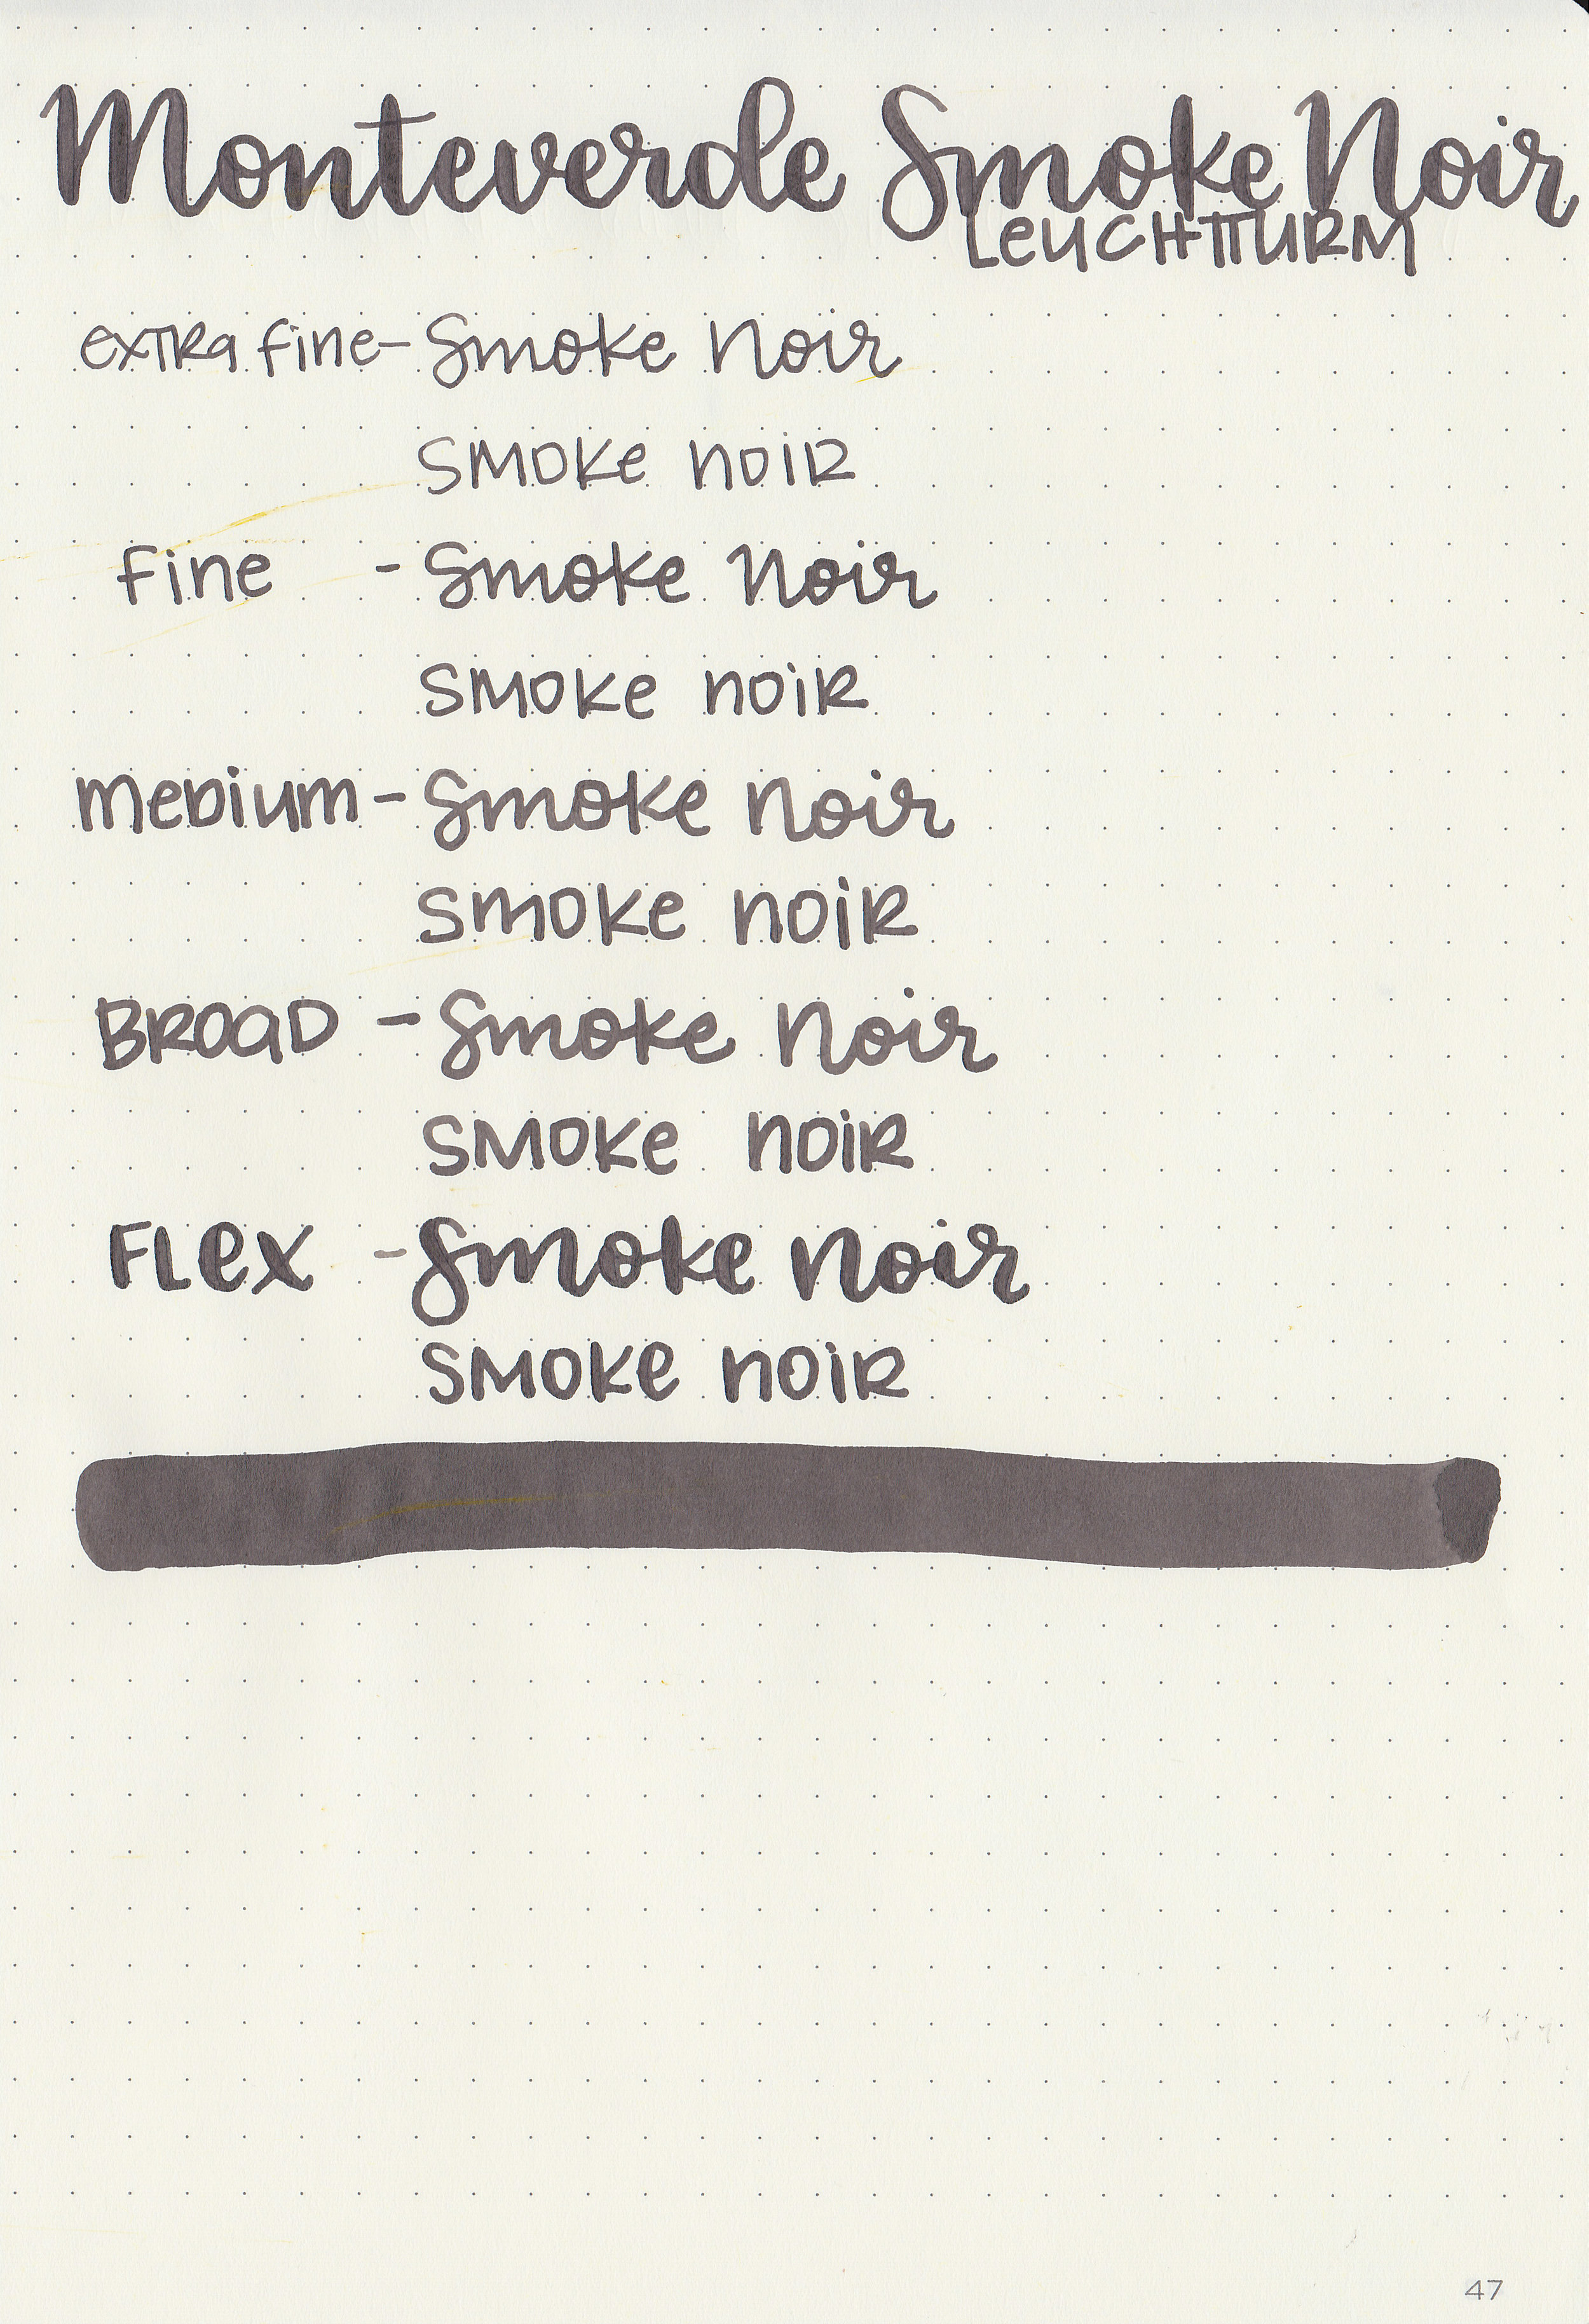 Monteverde Smoke Noir
LEUCHTTURM
extra fine - Smoke Noir
SMOKE NOIR
Fine - Smoke Noir
SMOKE NOIR
Medium - Smoke Noir
SMOKE NOIR
BROAD - Smoke Noir
SMOKE NOIR
FLex - Smoke Noir
SMOKE NOIR
47